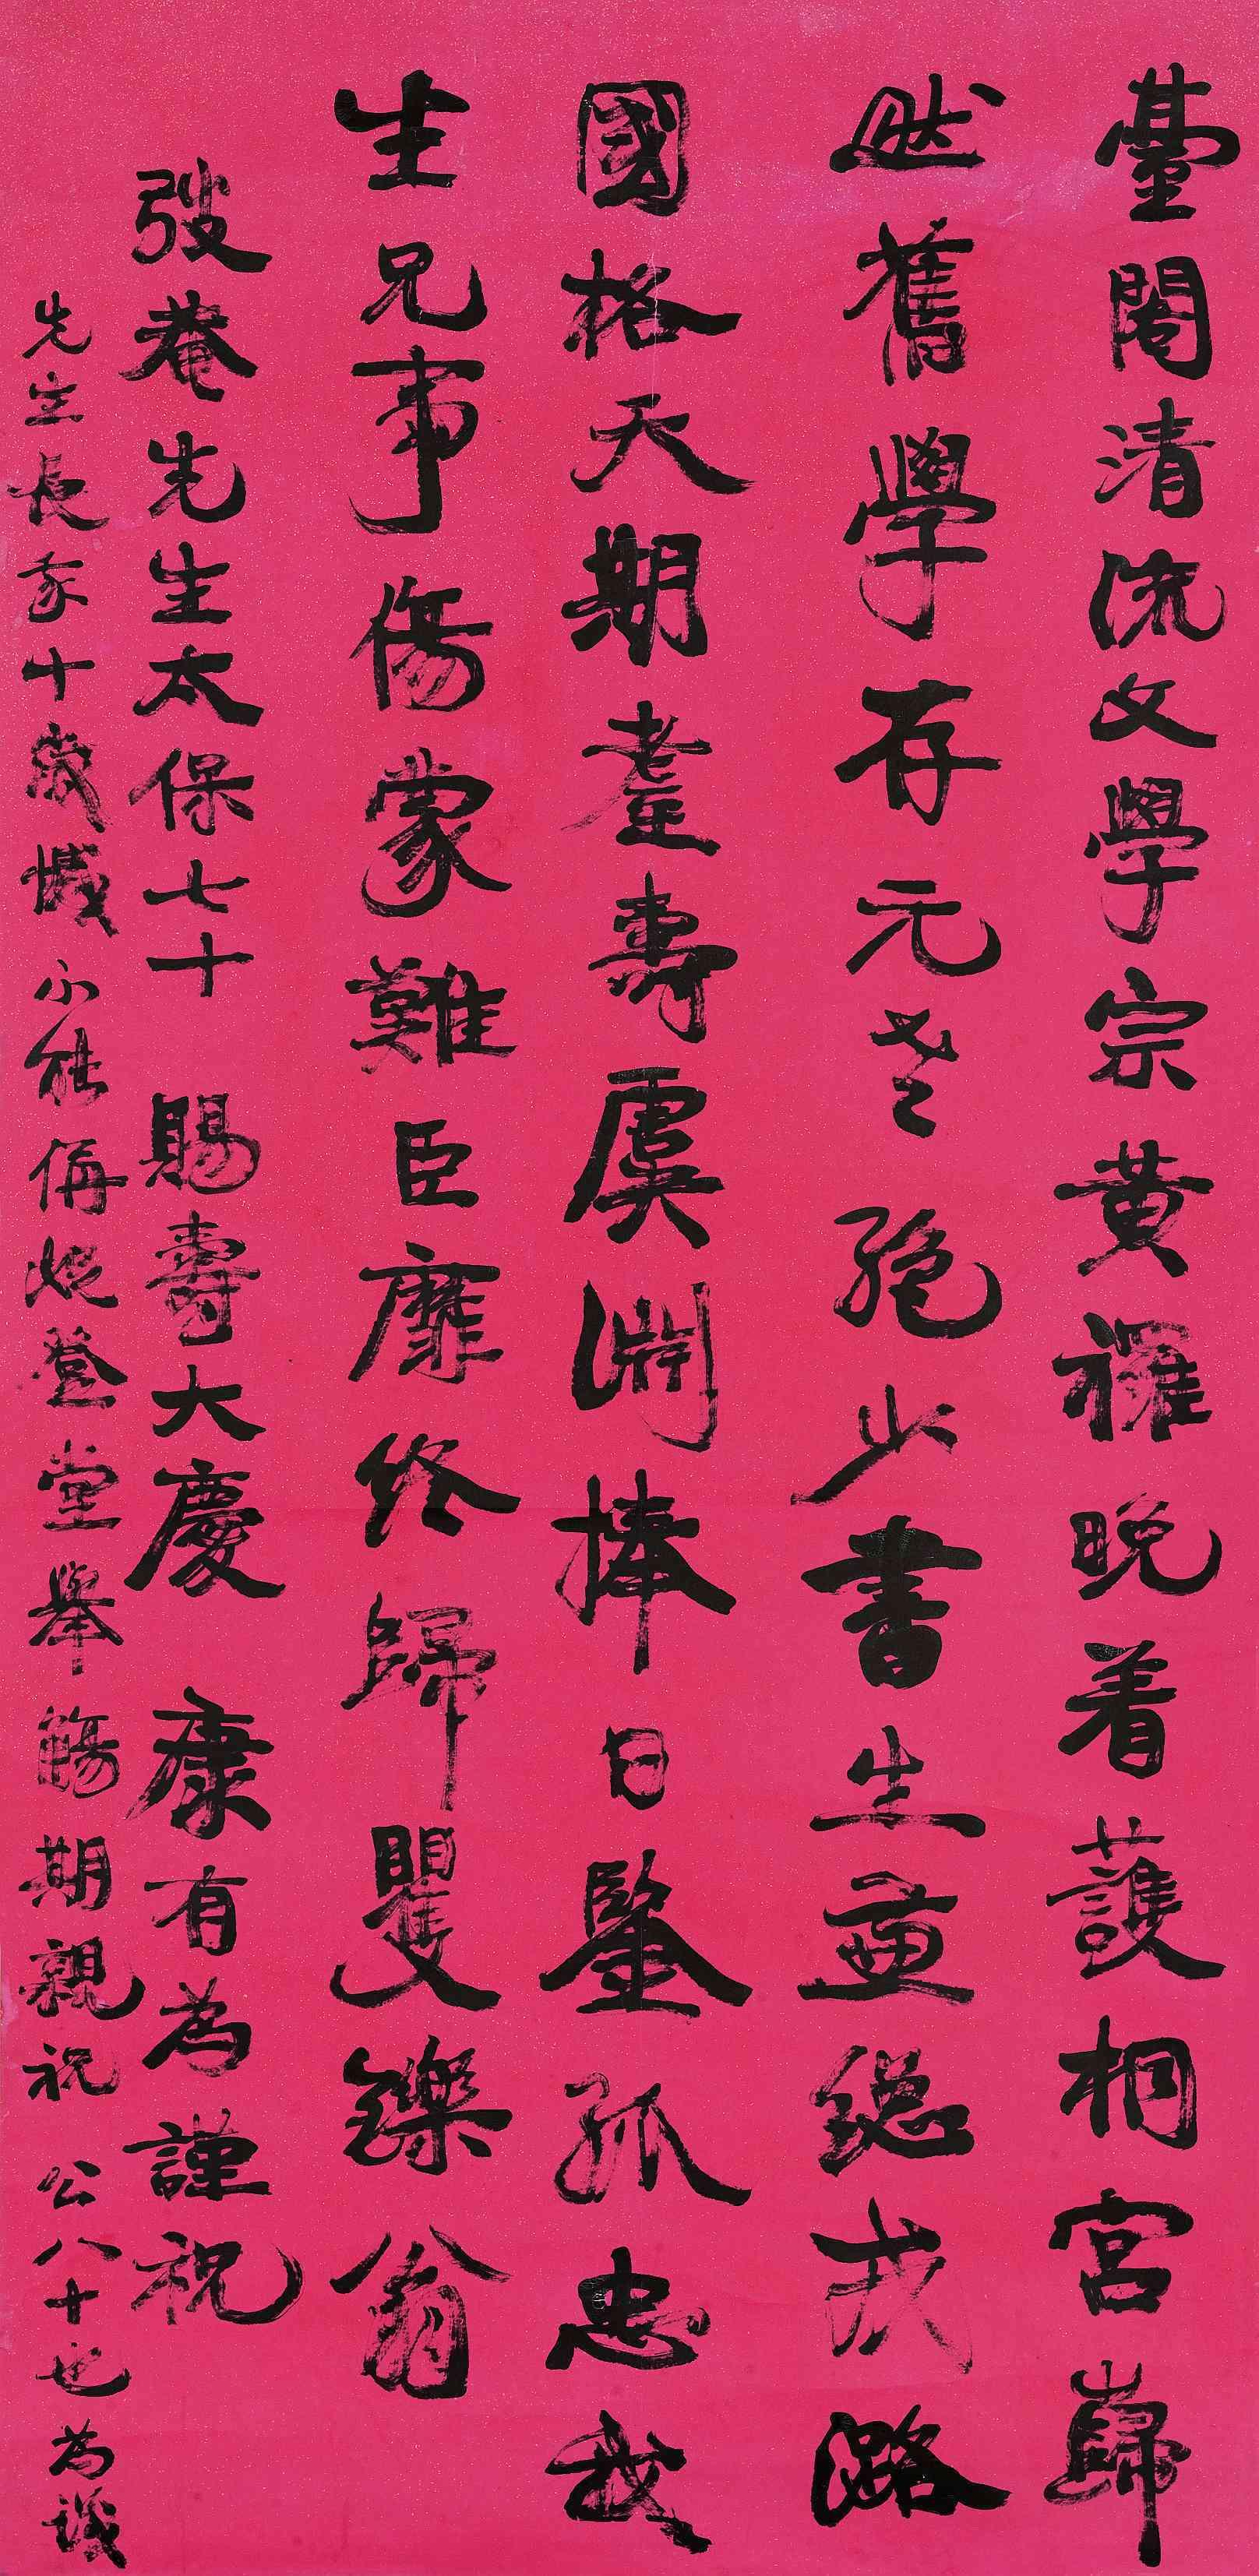 臺閣清流文學宗黃襬晚着護桐宮巋
然舊學存元老絕少書生並總戎潞
國格天期耋壽虞淵捧日鑒孤忠我
生兄事傷蒙難臣靡終歸矍鑠翁
弢菴先生太保七十 賜壽大慶 康有為謹祝
先生長我十歲慽不能偁觥登堂舉觴期親祝 公八十也為議